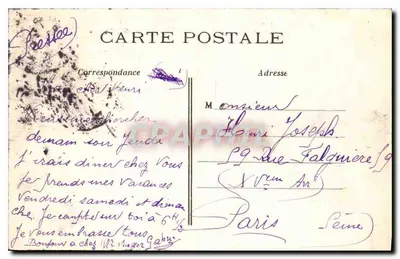 (Pressée)
CARTE POSTALE
Correspondance
Adresse
cher Henri
chercher
demain soir Jeudi
J'irais diner chez Vous
Je prends mes Vacances
Vendredi samedi et diman
che. Je compte sur toi à 6 H ½
Je Vous embrasse tous
Bonjour a chez
Monsieur
Henri Joseph
59 Rue Falguière 59
XVem Arr
Paris
(Seine)